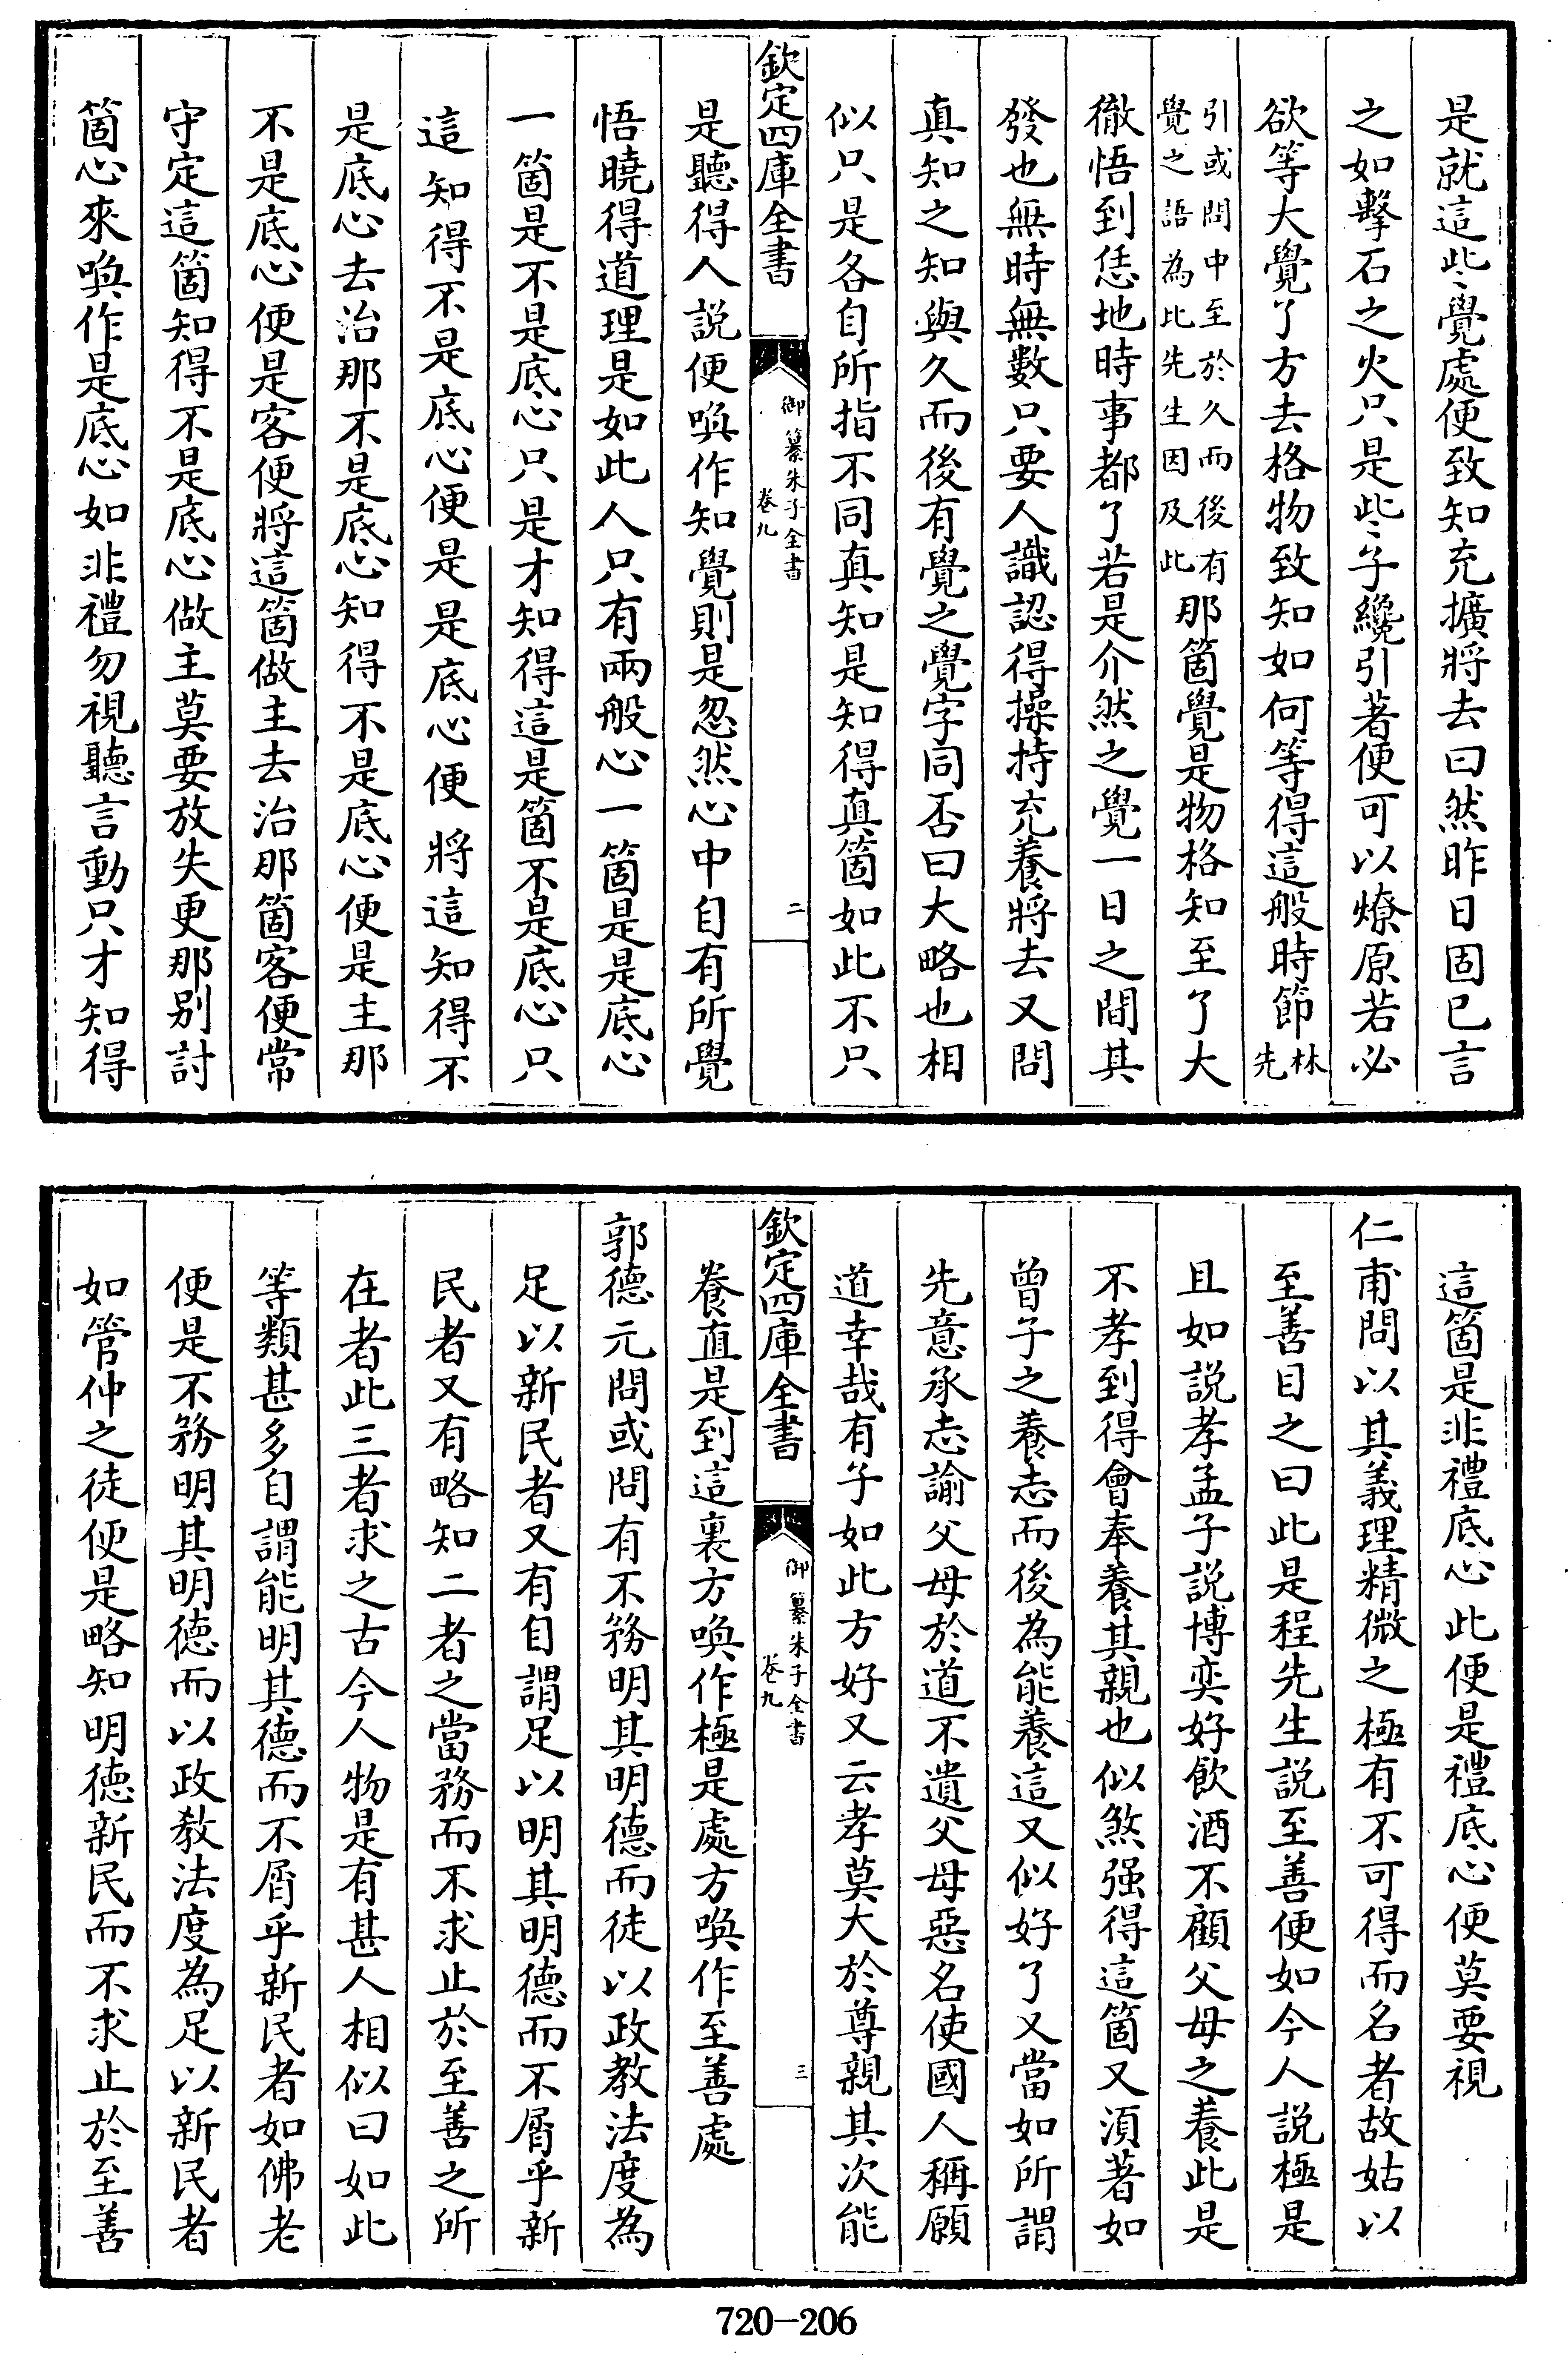 是就這些覺處便致知充擴將去曰然昨日固已言
之如擊石之火只是些子纔引著便可以燎原若必
欲等大覺了方去格物致知如何等得這般時節林先
引或問中至於久而後有覺之語為此先生因及此那箇覺是物格知至了大
徹悟到恁地時事都了若是介然之覺一日之間其
發也無時無數只要人識認得操持充養將去又問
真知之知與久而後有覺之覺字同否曰大略也相
似只是各自所指不同真知是知得真箇如此不只
欽定四庫全書
御纂朱子全書
卷九
二
是聽得人說便喚作知覺則是忽然心中自有所覺
悟曉得道理是如此人只有兩般心一箇是是底心
一箇是不是底心只是才知得這是箇不是底心只
這知得不是底心便是是底心便將這知得不
是底心去治那不是底心知得不是底心便是主那
不是底心便是客便將這箇做主去治那箇客便常
守定這箇知得不是底心做主莫要放失更那别討
箇心來喚作是底心如非禮勿視聽言動只才知得
這箇是非禮底心此便是禮底心便莫要視
仁甫問以其義理精微之極有不可得而名者故姑以
至善目之曰此是程先生說至善便如今人說極是
且如說孝孟子說博奕好飲酒不顧父母之養此是
不孝到得會奉養其親也似煞强得這箇又須著如
曾子之養志而後為能養這又似好了又當如所謂
先意承志諭父母於道不遺父母惡名使國人稱願
道幸哉有子如此方好又云孝莫大於尊親其次能
欽定四庫全書
御纂朱子全書
卷九
三
養直是到這裏方喚作極是處方喚作至善處
郭德元問或問有不務明其明德而徒以政教法度為
足以新民者又有自謂足以明其明德而不屑乎新
民者又有略知二者之當務而不求止於至善之所
在者此三者求之古今人物是有甚人相似曰如此
等類甚多自謂能明其德而不屑乎新民者如佛老
便是不務明其明德而以政教法度為足以新民者
如管仲之徒便是略知明德新民而不求止於至善
720-206